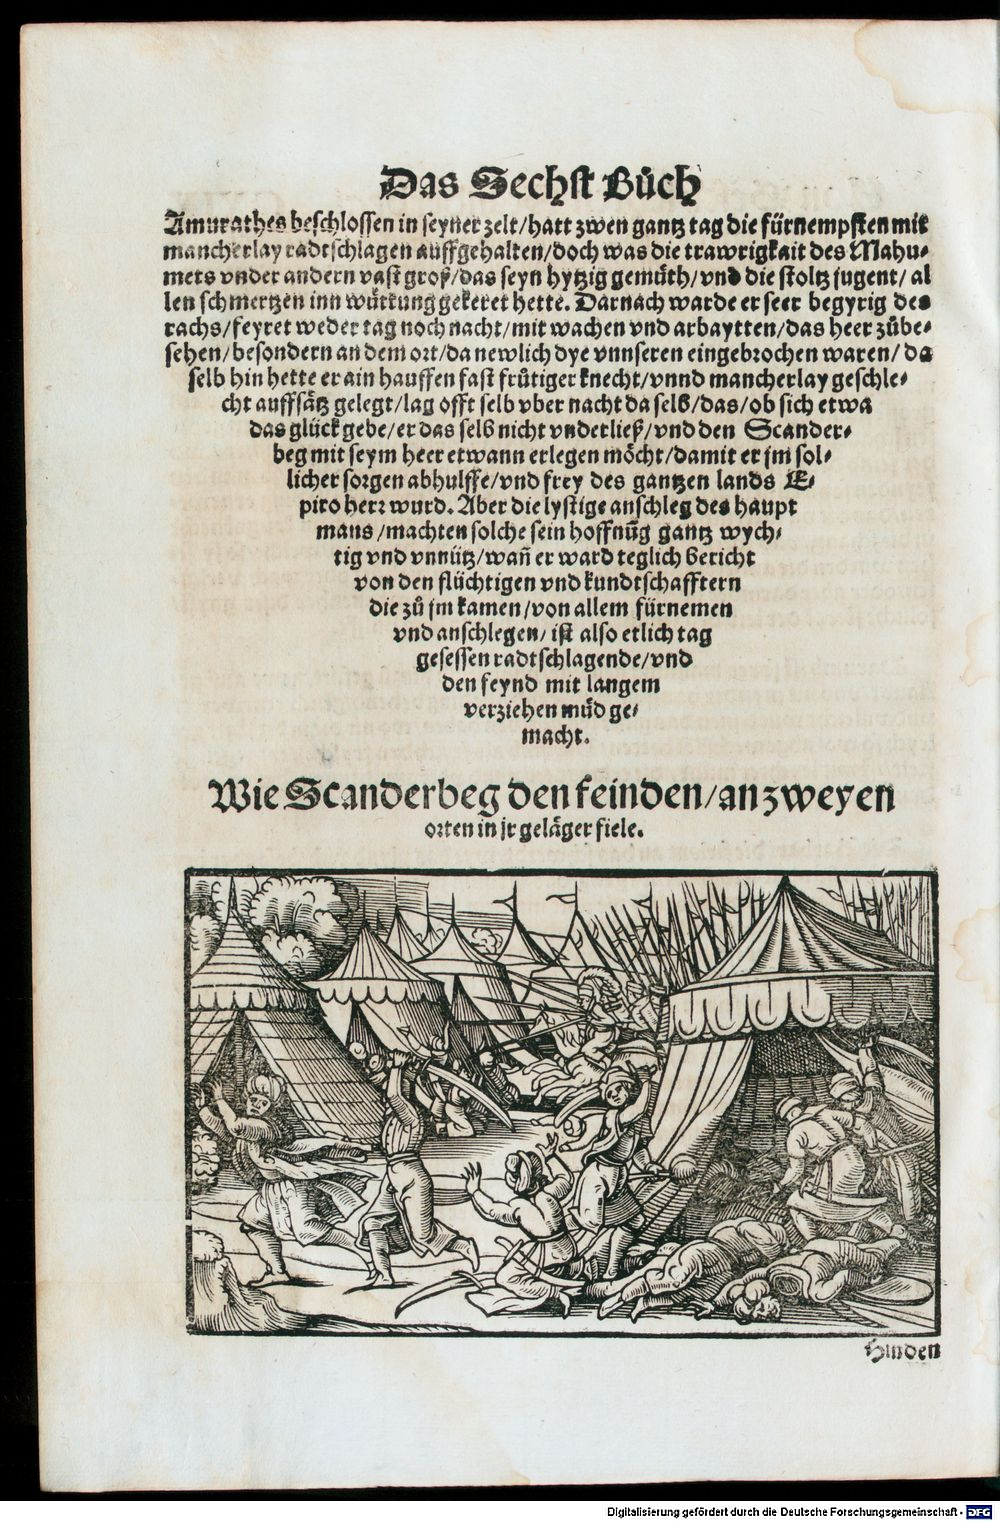 Das Sechst Bůch
Amurathes beschlossen in seyner zelt/hatt zwen gantz tag die fürnempsten mit
mancherlay radtschlagen auffgehalten/doch was die trawrigkait des Mahu-
mets vnder andern vast groß/das seyn hytzig gemüth/vnd die stoltz jugent/al
len schmertzen inn würkung gekeret hette. Darnach warde er seer begyrig des
rachs/feyret weder tag noch nacht/mit wachen vnd arbaytten/das heer zůbe-
sehen/besondern an dem ort/da newlich dye vnnseren eingebrochen waren/da
selb hin hette er ain hauffen fast frůtiger knecht/vnnd mancherlay geschle-
cht auffsätz gelegt/lag offt selb vber nacht da selb/das/ob sich etwa
das glück gebe/er das selb nicht vnderließ/vnd den Scander-
beg mit seym heer etwann erlegen möcht/damit er jm sol-
licher sorgen abhulffe/vnd frey des gantzen lands E-
piro herr wurd. Aber die lystige anschleg des haupt
mans/machten solche sein hoffnūg gantz wych-
tig vnd vnnütz/wañ er ward teglich bericht
von den flüchtigen vnd kundtschafftern
die zů jm kamen/von allem fürnemen
vnd anschlegen/ist also etlich tag
gesessen radtschlagende/vnd
den feynd mit langem
verziehen müd ge-
macht.
Wie Scanderbeg den feinden/an zweyen
orten in jr geläger fiele.
Hinden
Digitalisierung gefördert durch die Deutsche Forschungsgemeinschaft - DFG